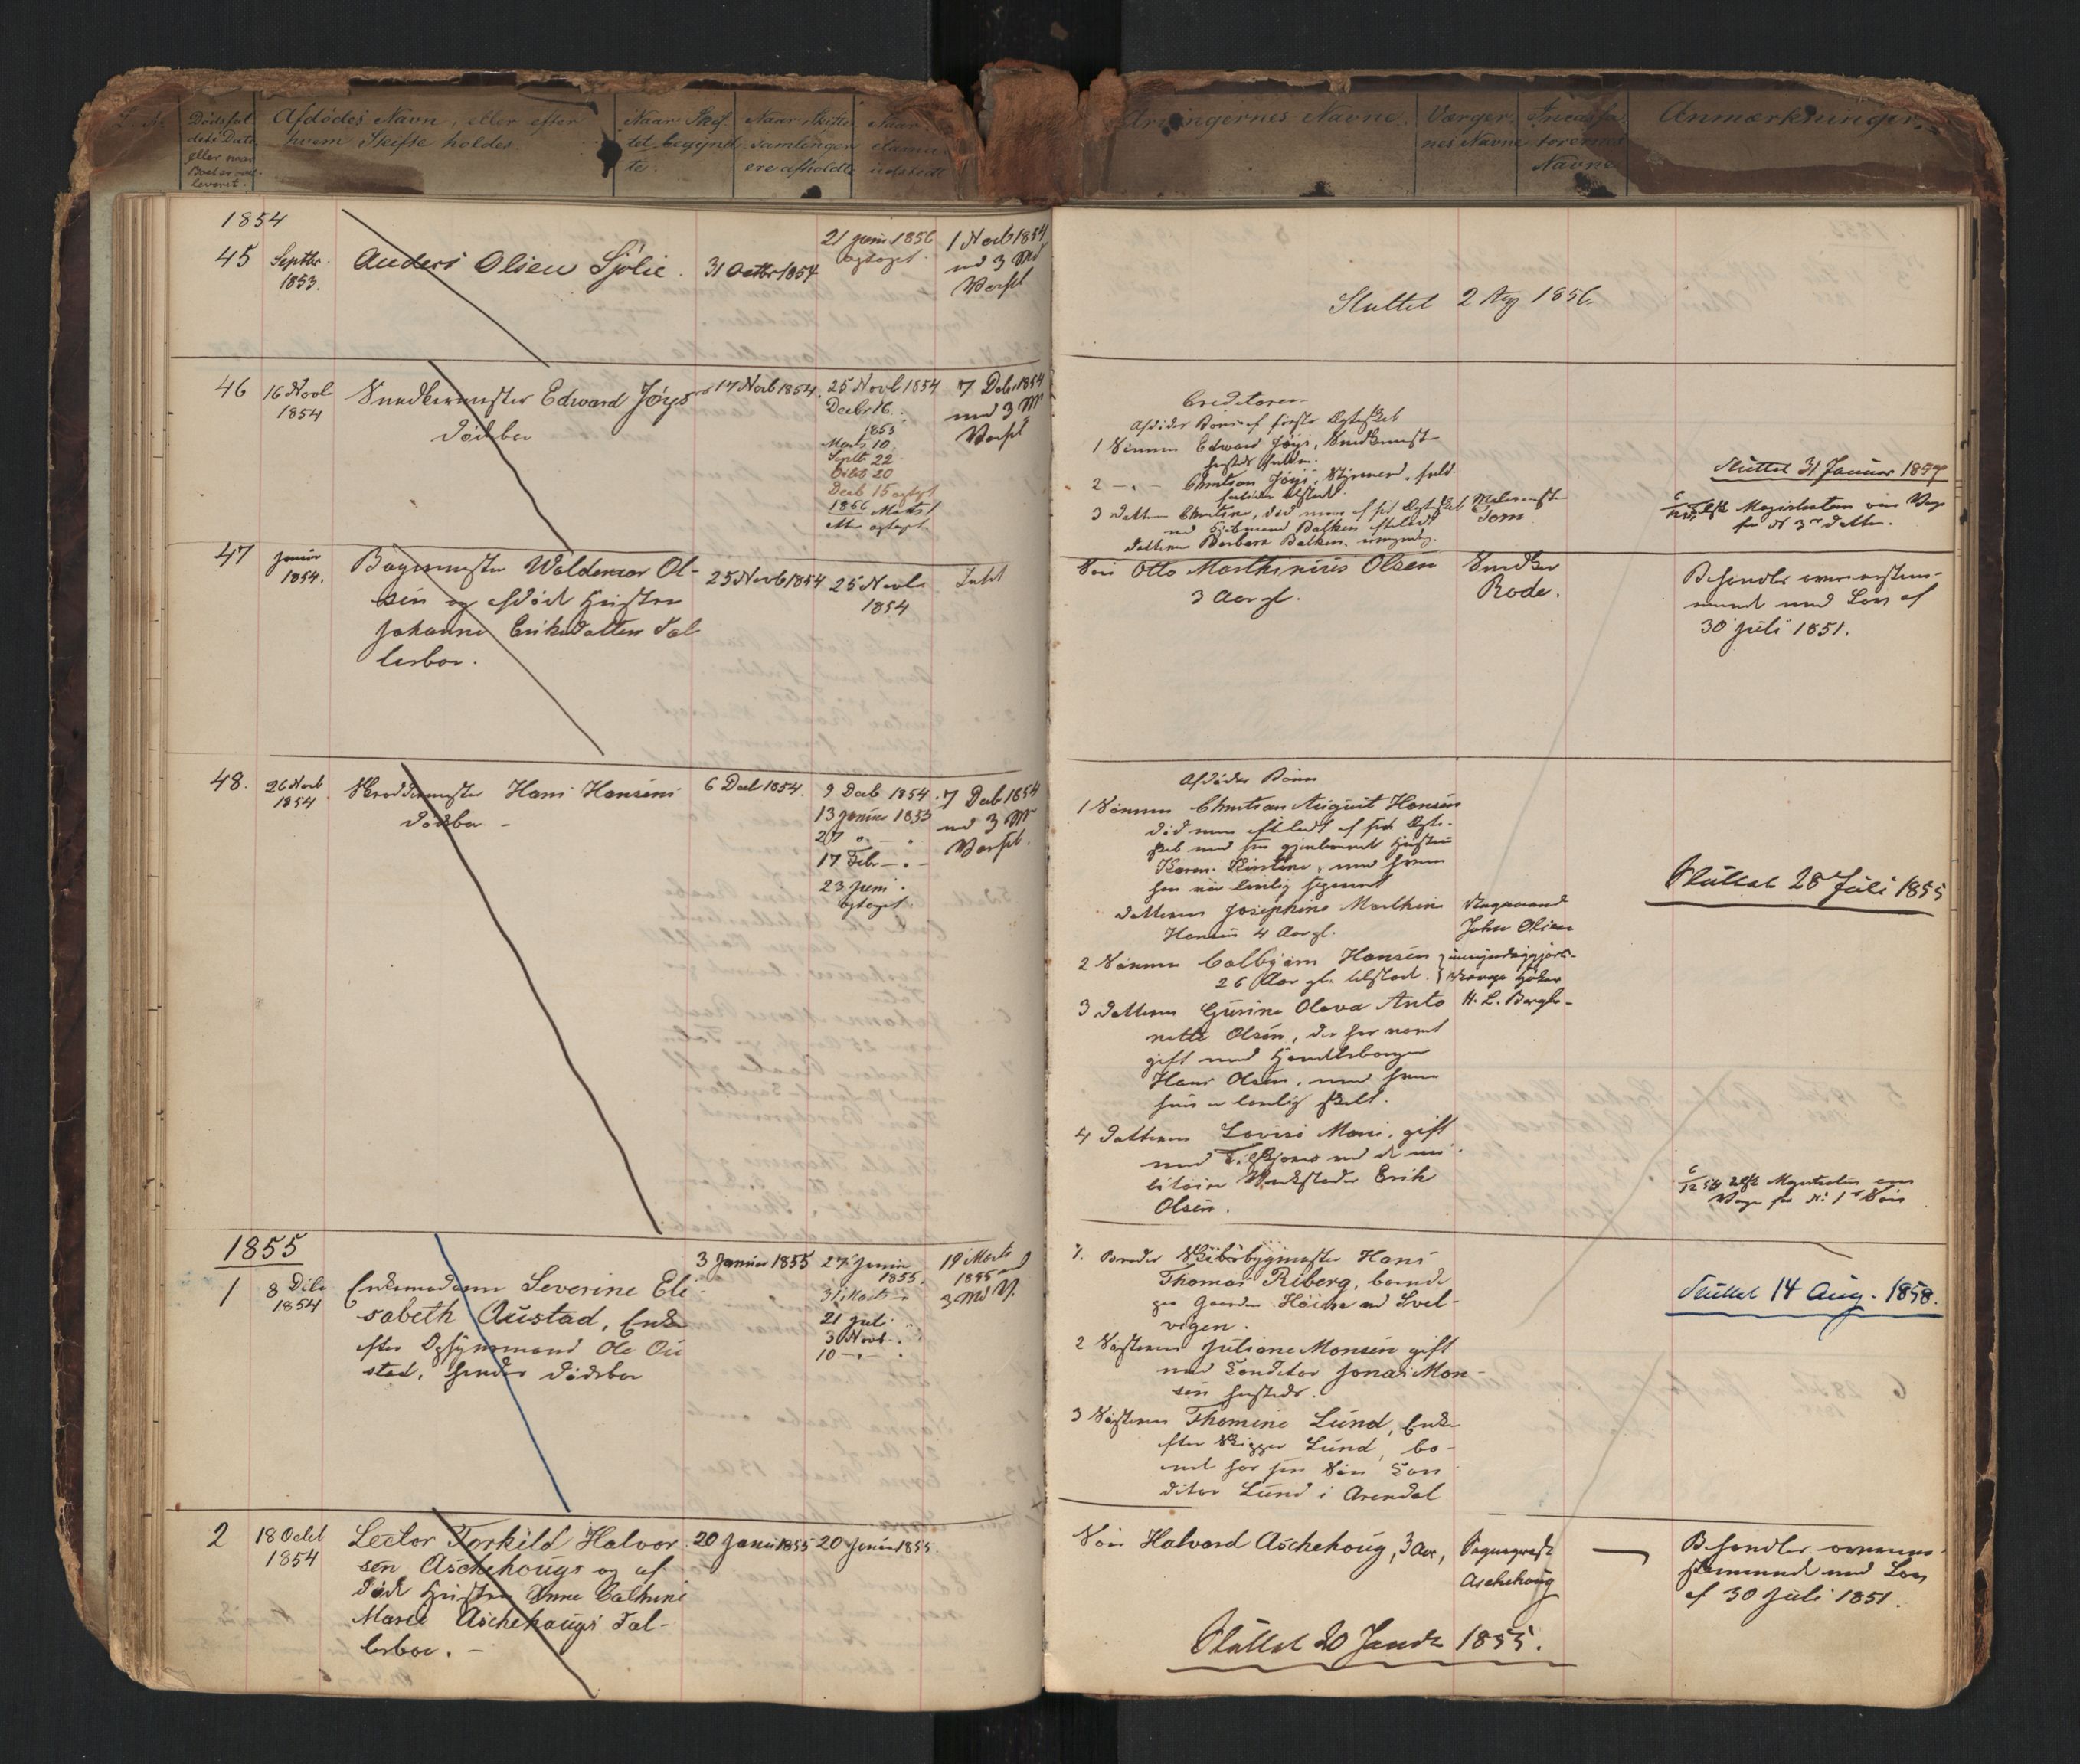 L. No.
Dødsfal
dets Dato
eller naar
Boet er over
leveret.
Afdødes Navn, eller efter
hvem Skifte holdes.
Naar Skif
tet begynd
te.
Naar Skifte
samlinger
ere afholdte
Naar
Proclama
udstedt
Arvingernes Navne.
Værger
nes Navne
Incassa
torernes
Navne
Anmærkninger.
1854
45
Septbr.
1853.
Anders Olsen Sjølie.
31 Octbr 1854
21 juni 1856
optaget.
1 Novb 1854
med 3 Md
Varsel
Sluttet 2 Aug 1856.
46
16 Novb
1854
Snedkermester Edward Jøys
dødsbo
17 Novb 1854.
25 Novb 1854
Decbr 16.
1855
Marts 10.
Septb 22.
Octob 20
Decb 15 optagt
1856 Marts 1
atter optaget.
7 Decb 1854
med 3 Md
Varsel
Creditorer
Afdødes Børn af første Ægteskab
1 Sønnen Edward Jøys, Snedkermester
hersteds, fuldm.
2 -"- Christian Jøys, Styrmand, fuld
3 Datteren Christine, død men af sit Ægteskab
med Balken efterladt
Datteren Barbara Balken, umyndig.
Malermester
Tom
Sluttet 31 Januar 1857
6/12 54 tilsk Magistraten om Værge
for No 3s Datter.
47
Januar
1854.
Bagermester Waldemar Ol-
sen og afdød Hustru
Johanne Eriksdatters Fæl
lesbo.
25 Novb 1854
25 Novb
1854
Intet
Søn Otto Marthinius Olsen
3 Aar gl.
Snedker
Rode.
Behandlet overensstem-
mende med Lov af
30 Juli 1851.
48.
26 Novb
1854
Skræddermester Hans Hansens
dødsbo -
6 Decb 1854.
9 Decb 1854.
13 januar 1855
27 " - "
17 Febr - " -
23 Juni "
optaget
7 Decb 1854
med 3 Md
Varsel.
Afdødes Børn
1 Sønnen Christian August Hansen
død men efterladt af sit Ægte-
skab med sin gjenlevende Hustru
Karen Kirstine, med hvem
han var lovlig separeret
Datteren Josephine Marthine
Hansen 4 Aar gl.
Vognmand
John Olsen
2 Sønnen Colbjørn Hansen
26 Aar gl. tilstaet.
umyndiggjort
H. L. Bergh-
3 Datteren Gurine Oleva Anto
nette Olsen, der har været
gift med Handelsborger
Hans Olsen, med hvem
hun er lovlig skilt.
4 Datteren Lovise Marie, gift
med Filskjærer ved de mi
litaire Værksteder Erik
Olsen.
Sluttet 28 Juli 1855
6/12 54 tilsk Magistraten om
Værge for No 1s Søn
1855
1
8 Decb
1854
Enkemadame Severine Eli
sabeth Austad, Enke
efter Opsynsmand Ole Au
stad, hendes dødsbo
3 Januar 1855
27 Januar
1855.
31 Marts "
21 juli "
3 Novb "
10 - " - "
19 Marts
1855 med
3 Md V.
1. Broder Skibsbygmester Hans
Thomas Riberg, boende
paa Gaarden Höien ved Svel-
vigen.
2 Søsteren Juliane Monsen gift
med Conditor Jonas Mon-
sen hersteds.
3 Søsteren Thomine Lund, Enke
efter Skipper Lund, bo-
ende hos sin Søn Con
ditor Lund i Arendal
Sluttet 14 Aug. 1858.
2
18 Octob
1854
Lector Torkild Halvor
sen Aschehougs og af
død Hustru Anne Cathrine
Marie Aschehougs Fæl-
lesbo. -
20 Januar 1855
20 Januar 1855.
Søn Halvard Aschehoug, 3 Aar,
Sogneprest
Aschehoug
Behandlet overens
stemmende med Lov
af 30 Juli 1851.
Sluttet 20 Januar 1855.